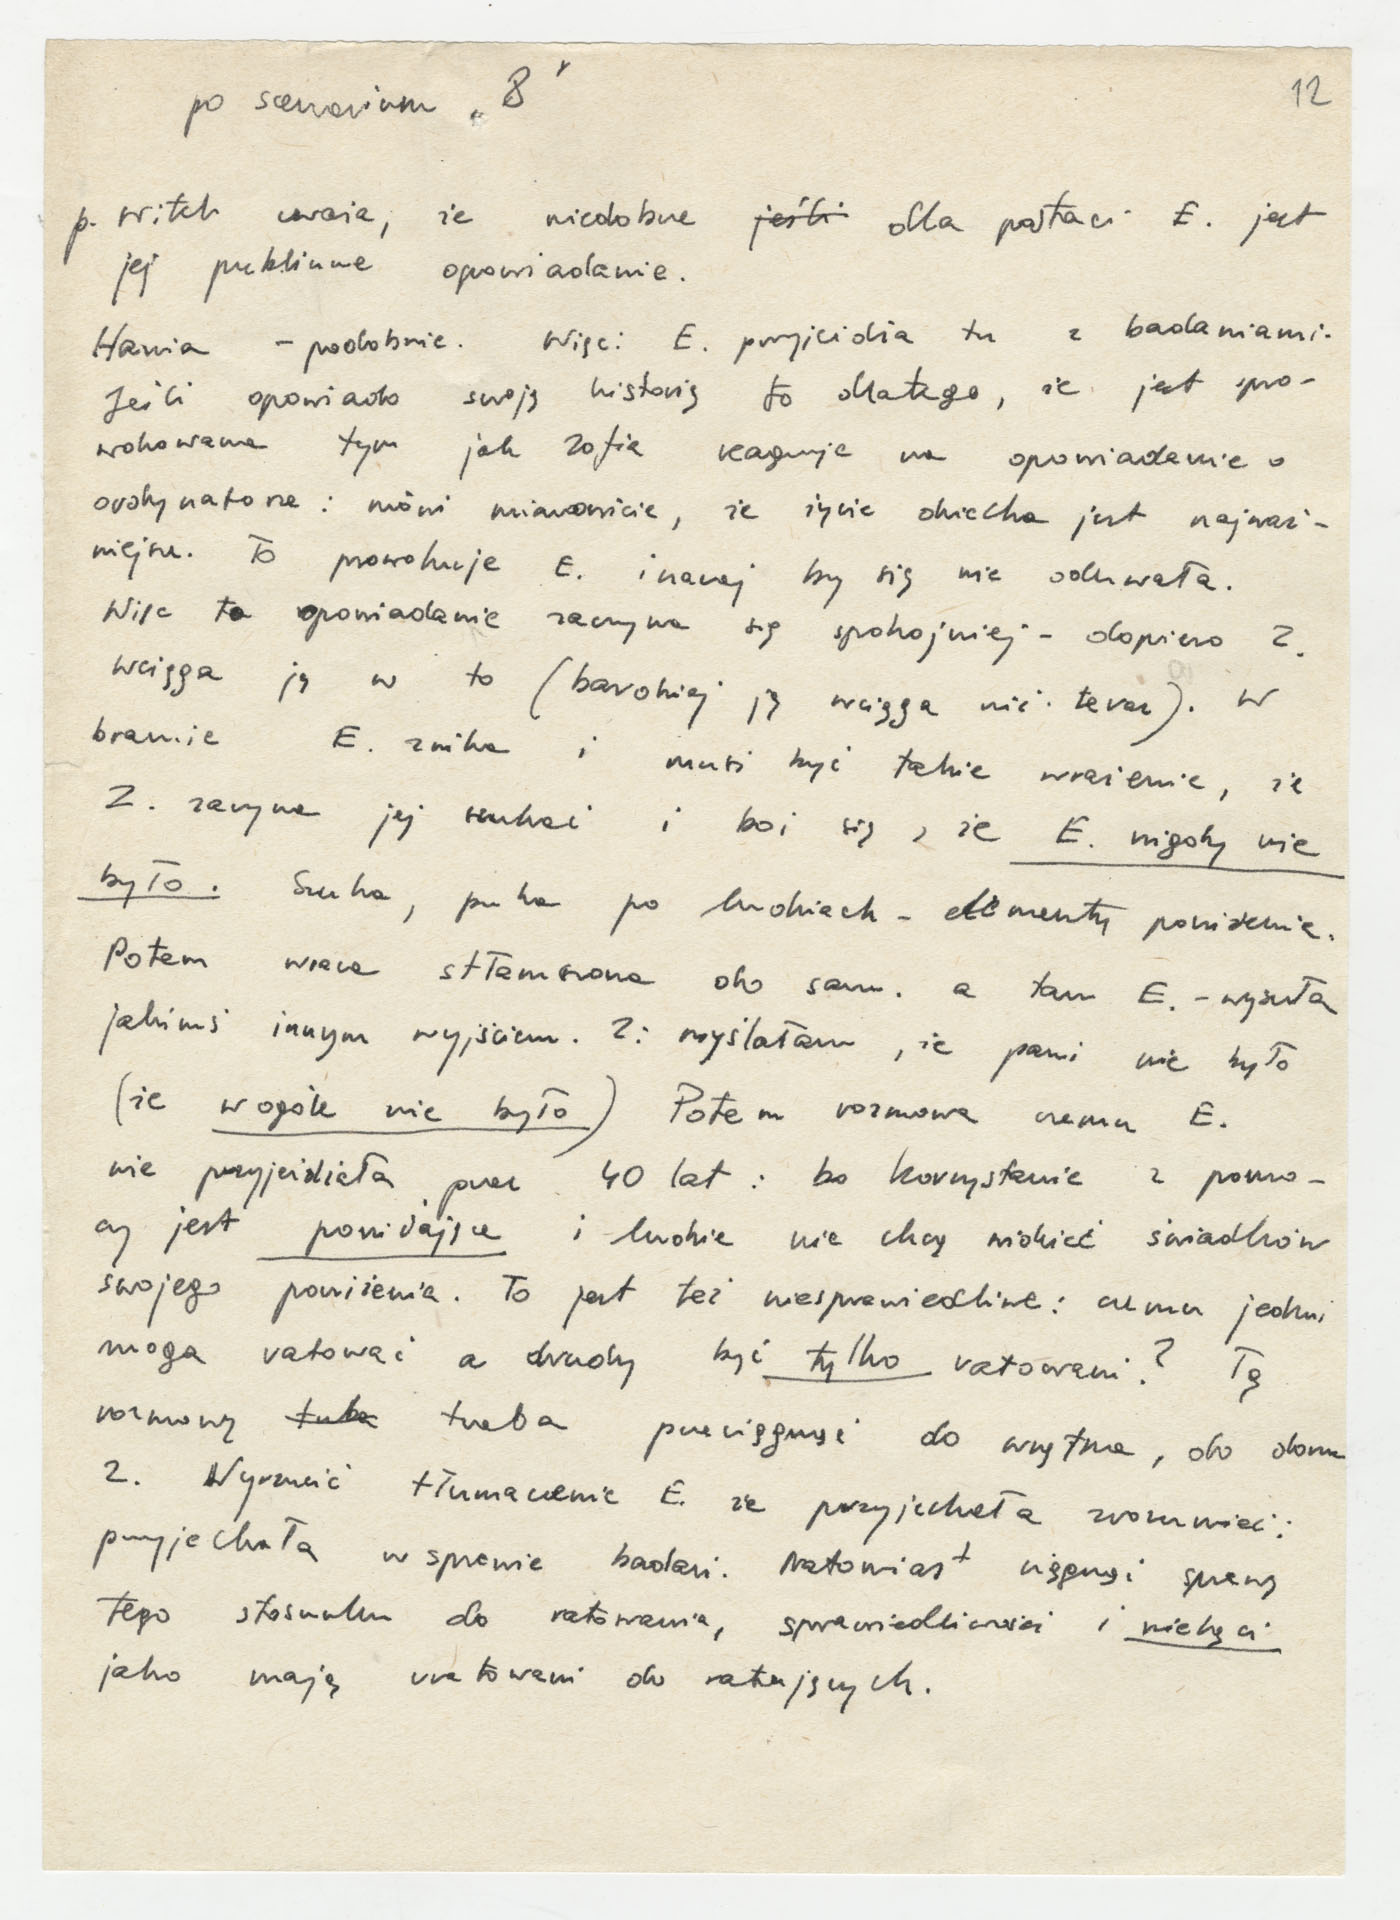 po scenariuszu „8”
12
p. Witek uważa, że niedobre jeśli dla postaci E. jest
jej publiczne opowiadanie.
Hania - podobnie. Więc: E. przyjeżdża tu z badaniami.
Jeśli opowiada swoją historię to dlatego, że jest spro-
wokowana tym jak Zofia reaguje na opowiadanie o
ordynatorze: mówi mianowicie, że życie dziecka jest najważ-
niejsze. To prowokuje E. inaczej by się nie odezwała.
Więc to opowiadanie zaczyna się spokojniej - dopiero Z.
wciąga ją w to (bardziej ją wciąga niż teraz). W
bramie E. znika i musi być takie wrażenie, że
Z. zaczyna jej szukać i boi się, że E. nigdy nie
było. Szuka, puka po ludziach - elementy poniżenia.
Potem wraca stłamszona do sam. a tam E. - wyszła
jakimś innym wyjściem. Z: myślałam, że pani nie było
(że wogóle nie było) Potem rozmowa czemu E.
nie przyjeżdżała przez 40 lat: bo korzystanie z pomo-
cy jest poniżające i ludzie nie chcą widzieć świadków
swojego poniżenia. To jest też niesprawiedliwe: czemu jedni
mogą ratować a drudzy być tylko ratowani? Tę
rozmowę trzeba trzeba przeciągnąć do wnętrza, do domu
Z. Wyrzucić tłumaczenie E. że przyjechała zrozumieć:
przyjechała w sprawie badań. Natomiast ciągnąć sprawę
tego stosunku do ratowania, sprawiedliwości i niechęci
jaką mają uratowani do ratujących.